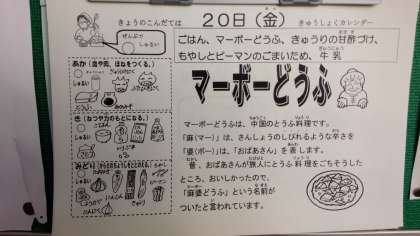 きょうのこんだては
20日(金)
きゅうしょくカレンダー
ぜんぶで
しゅるい
ごはん、マーボーどうふ、きゅうりの甘酢づけ、
もやしとピーマンのごまいため、牛乳
あか(血や肉、ほねをつくる。)
しゅるい
マーボーどうふ
き(ねつや力のもとになる。)
しゅるい
みどり
しゅるい
ピーマン
しょうが
にんにく
マーボーどうふは、中国のとうふ料理です。
「麻(マー)」は、さんしょうのしびれるような辛さを
「婆(ボー)」は、「おばあさん」を表します。
昔、おばあさんが旅人にとうふ料理をごちそうした
ところ、おいしかったので、
「麻婆どうふ」という名前が
ついたと言われています。